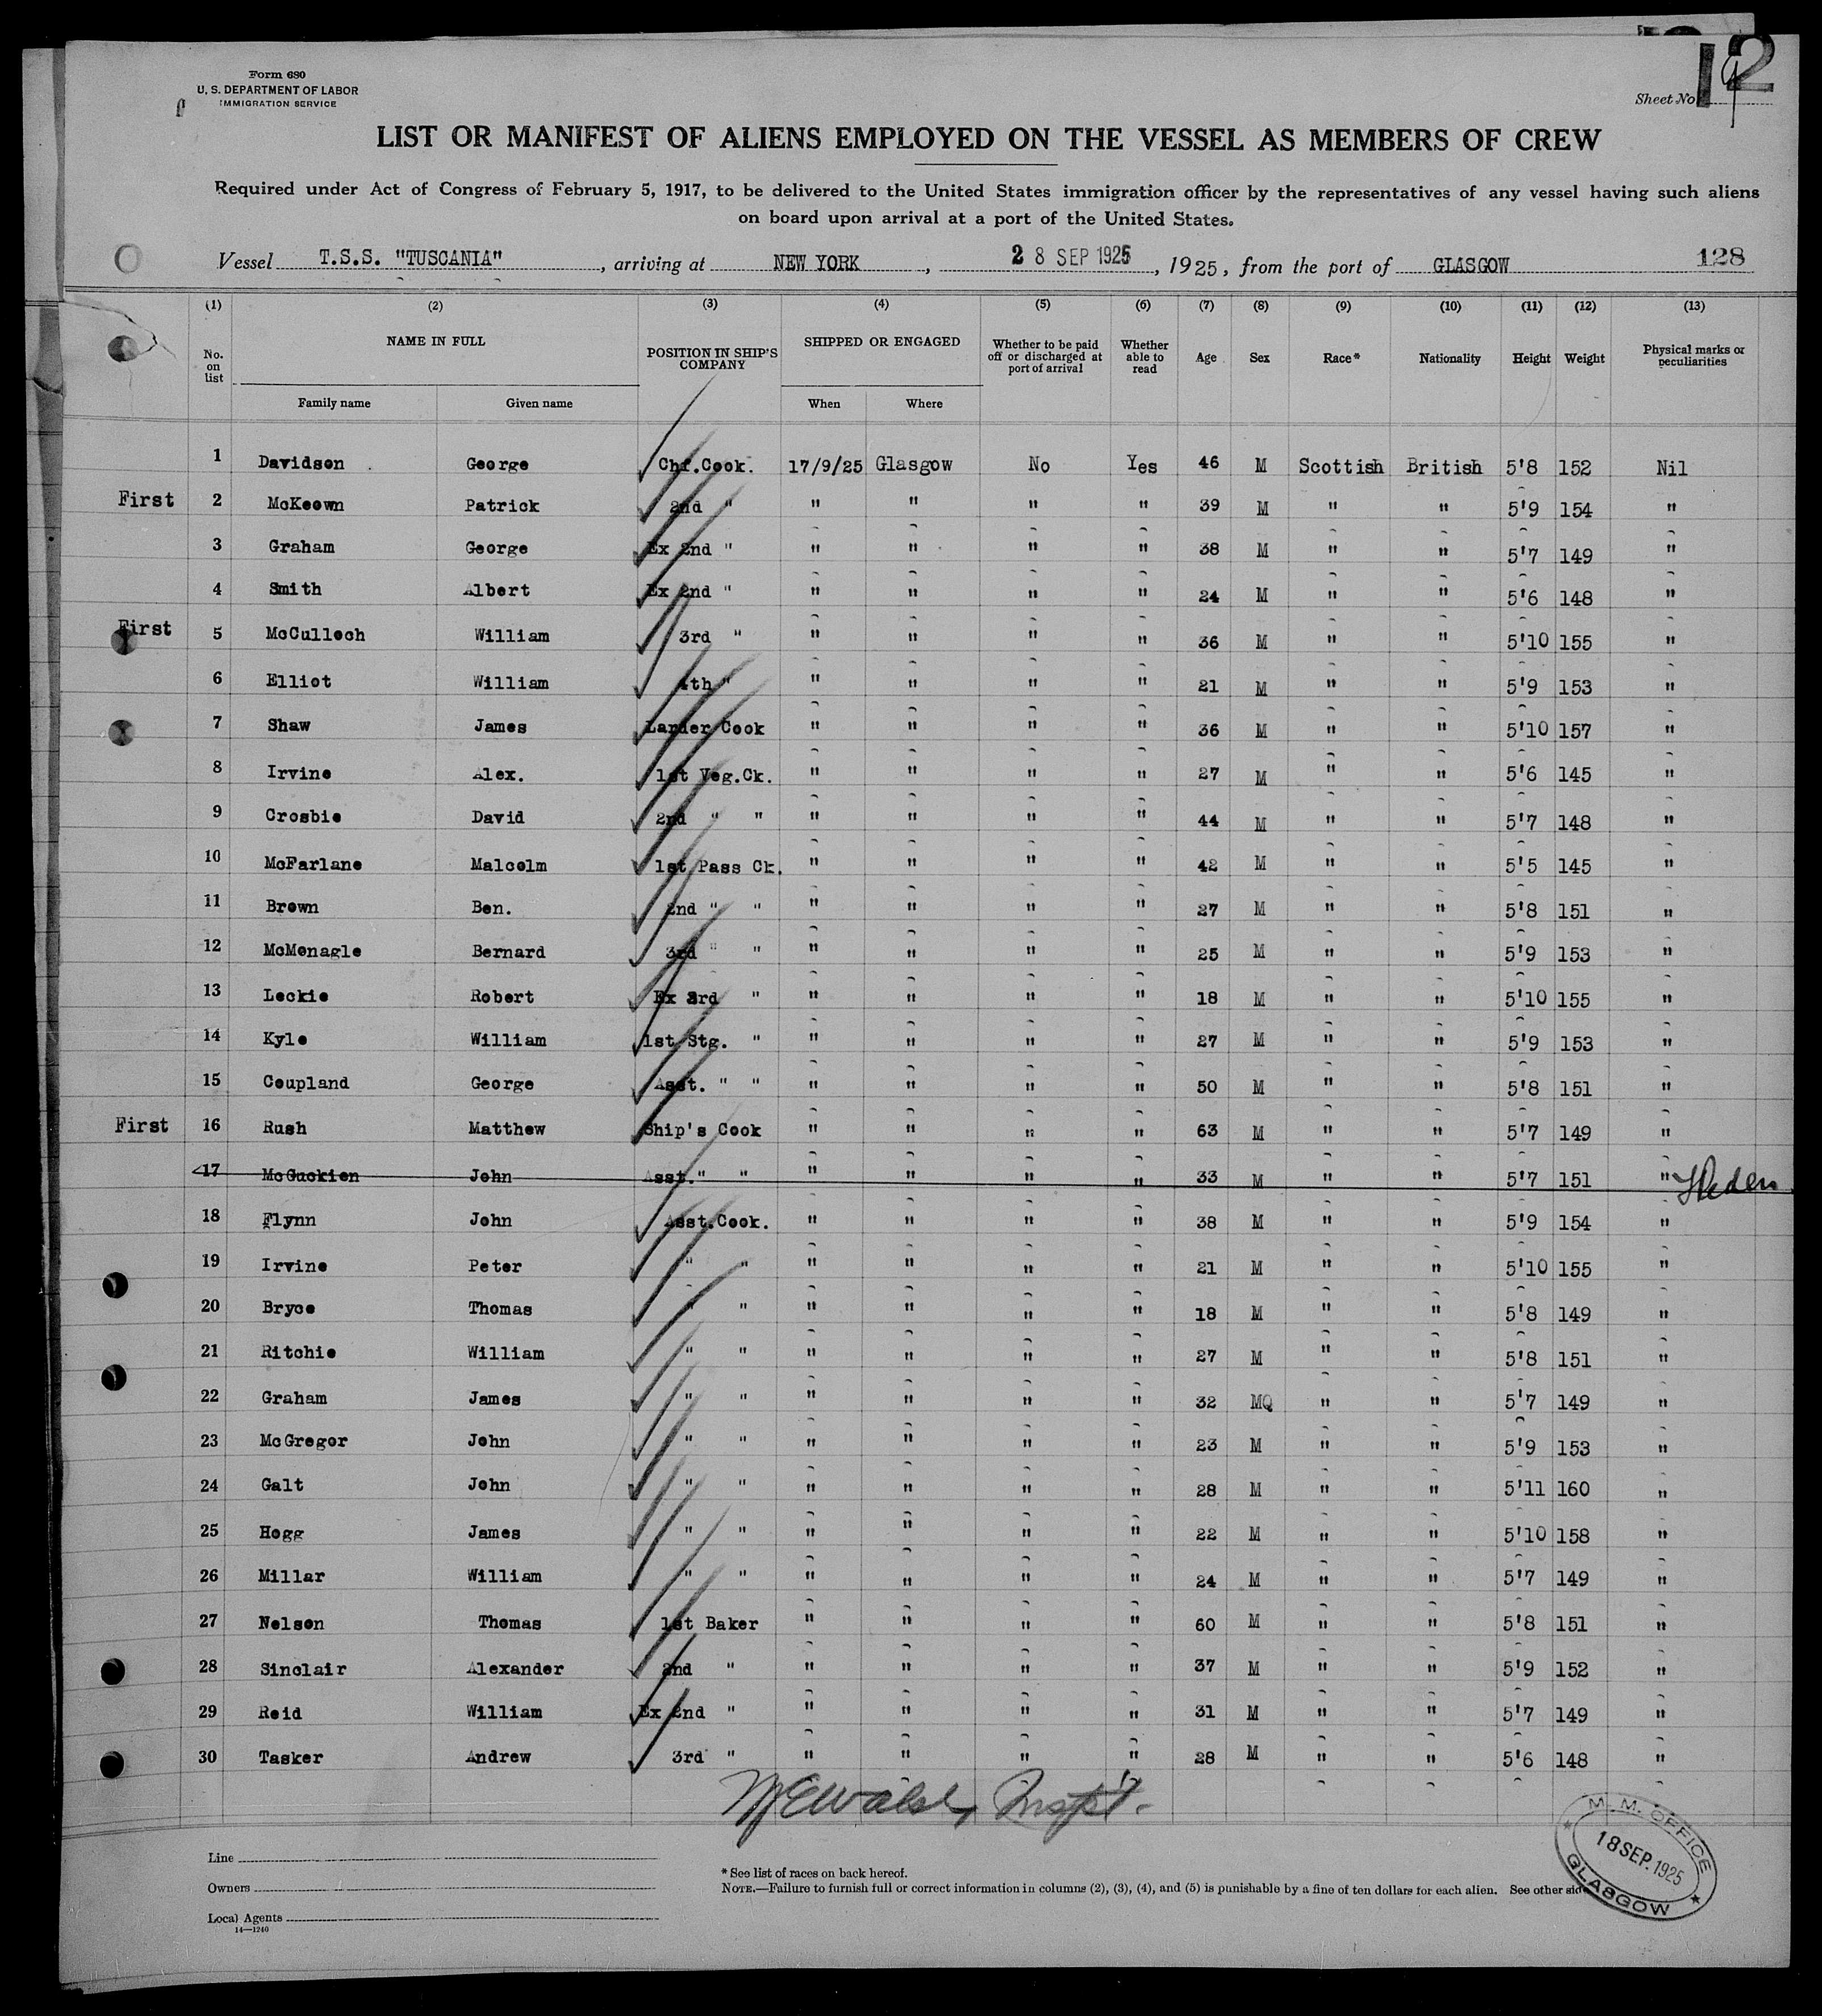 12
Form 680
U. S. DEPARTMENT OF LABOR
IMMIGRATION SERVICE
Sheet No
LIST OR MANIFEST OF ALIENS EMPLOYED ON THE VESSEL AS MEMBERS OF CREW
Required under Act of Congress of February 5, 1917, to be delivered to the United States immigration officer by the representatives of any vessel having such aliens
on board upon arrival at a port of the United States.
Vessel T.S.S. "TUSCANIA", arriving at NEW YORK, 28 SEP 1925, 1925, from the port of GLASGOW 128
(1) (2) (3) (4) (5) (6) (7) (8) (9) (10) (11) (12) (13)
No. on list NAME IN FULL POSITION IN SHIP'S COMPANY SHIPPED OR ENGAGED Whether to be paid off or discharged at port of arrival Whether able to read Age Sex Race* Nationality Height Weight Physical marks or peculiarities
Family name Given name When Where
1 Davidson George Chf.Cook. 17/9/25 Glasgow No Yes 46 M Scottish British 5'8 152 Nil
First 2 McKeown Patrick 2nd " " " " " 39 M " " 5'9 154 "
3 Graham George Ex 2nd " " " " " 38 M " " 5'7 149 "
4 Smith Albert Ex 2nd " " " " " 24 M " " 5'6 148 "
First 5 McCulloch William 3rd " " " " " 36 M " " 5'10 155 "
6 Elliot William 4th " " " " " 21 M " " 5'9 153 "
7 Shaw James Larder Cook " " " " 36 M " " 5'10 157 "
8 Irvine Alex. 1st Veg.Ck. " " " " 27 M " " 5'6 145 "
9 Crosbie David 2nd " " " " " " 44 M " " 5'7 148 "
10 McFarlane Malcolm 1st Pass Ck. " " " " 42 M " " 5'5 145 "
11 Brown Ben. 2nd " " " " " " 27 M " " 5'8 151 "
12 McMonagle Bernard 3rd " " " " " " 25 M " " 5'9 153 "
13 Leckie Robert Ex 3rd " " " " " 18 M " " 5'10 155 "
14 Kyle William 1st Stg. " " " " " 27 M " " 5'9 153 "
15 Coupland George Asst. " " " " " " 50 M " " 5'8 151 "
First 16 Rush Matthew Ship's Cook " " " " 63 M " " 5'7 149 "
17 McGuckien John Asst." " " " " " 33 M " " 5'7 151 "
18 Flynn John Asst.Cook. " " " " 38 M " " 5'9 154 "
19 Irvine Peter " " " " " " 21 M " " 5'10 155 "
20 Bryce Thomas " " " " " " 18 M " " 5'8 149 "
21 Ritchie William " " " " " " 27 M " " 5'8 151 "
22 Graham James " " " " " " 32 MQ " " 5'7 149 "
23 McGregor John " " " " " " 23 M " " 5'9 153 "
24 Galt John " " " " " " 28 M " " 5'11 160 "
25 Hogg James " " " " " " 22 M " " 5'10 158 "
26 Millar William " " " " " " 24 M " " 5'7 149 "
27 Nelson Thomas 1st Baker " " " " 60 M " " 5'8 151 "
28 Sinclair Alexander 2nd " " " " " 37 M " " 5'9 152 "
29 Reid William Ex 2nd " " " " " 31 M " " 5'7 149 "
30 Tasker Andrew 3rd " " " " " 28 M " " 5'6 148 "
Walsh, Inspt.
M. M. OFFICE
18 SEP. 1925
GLASGOW
Line
Owners
Local Agents
14—1240
* See list of races on back hereof.
NOTE.—Failure to furnish full or correct information in columns (2), (3), (4), and (5) is punishable by a fine of ten dollars for each alien. See other side